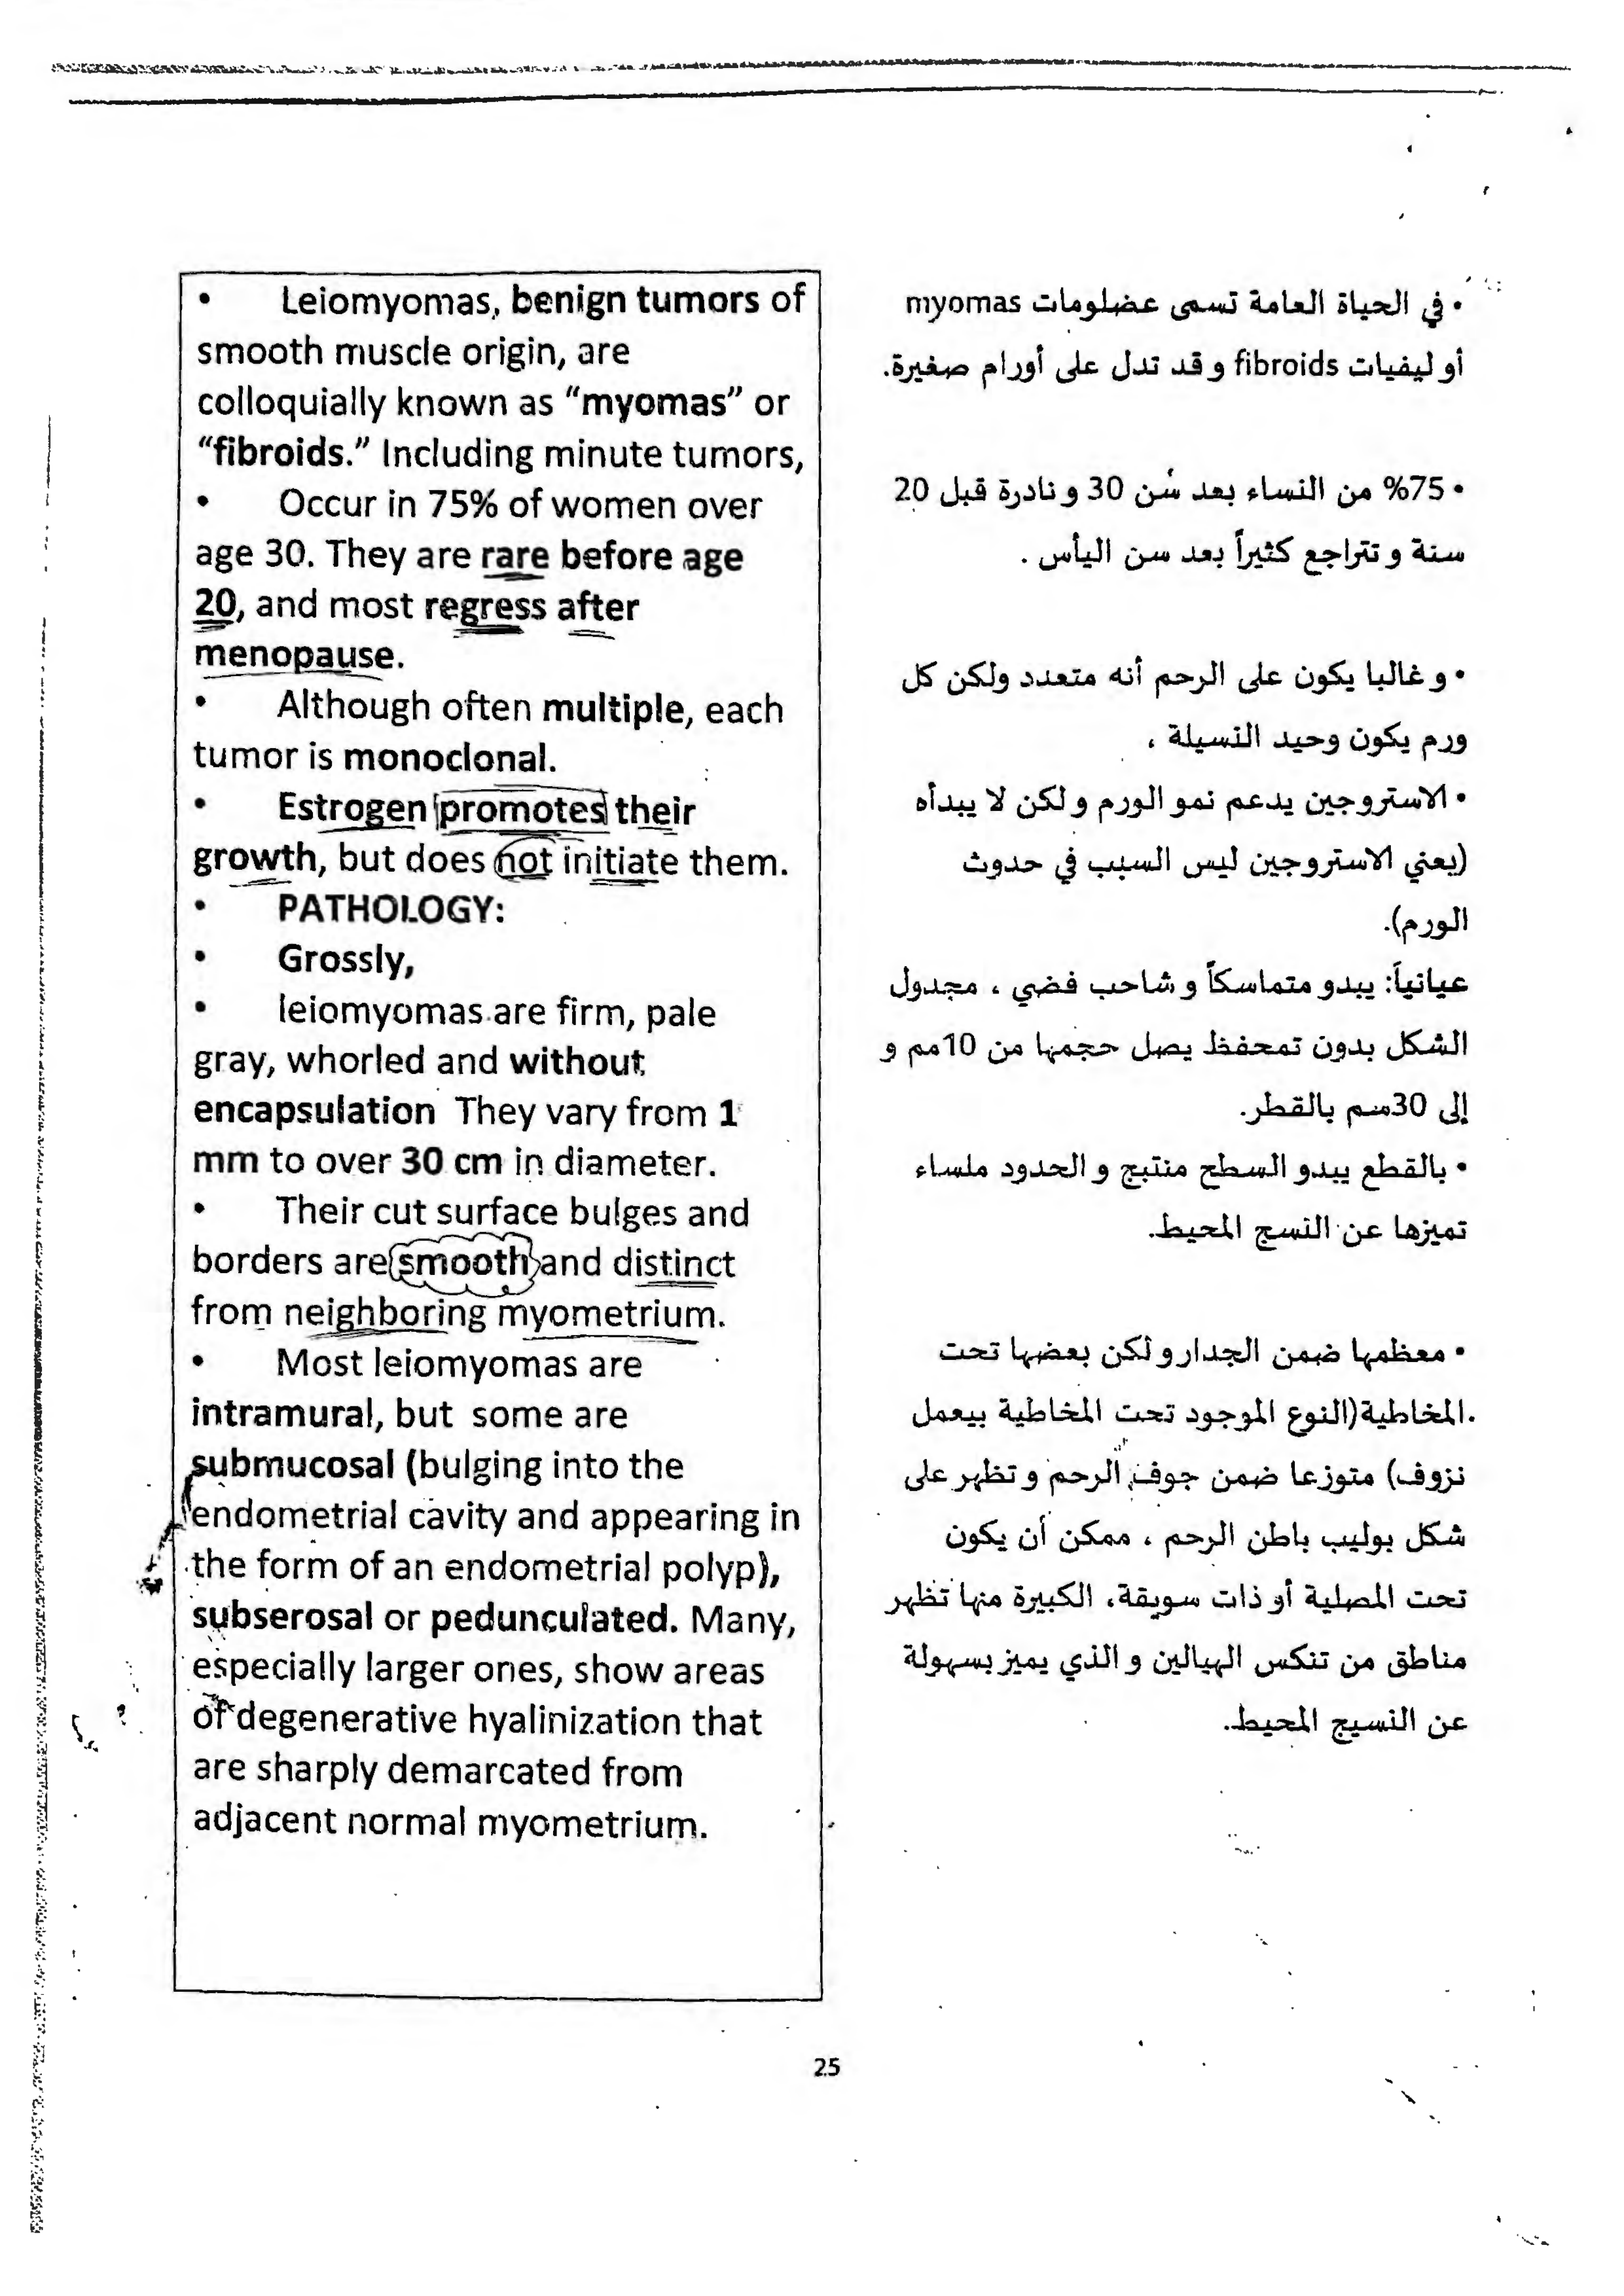 • Leiomyomas, benign tumors of
smooth muscle origin, are
colloquially known as “myomas” or
“fibroids.” Including minute tumors,
• Occur in 75% of women over
age 30. They are rare before age
20, and most regress after
menopause.
• Although often multiple, each
tumor is monoclonal.
• Estrogen promotes their
growth, but does not initiate them.
• PATHOLOGY:
• Grossly,
• leiomyomas are firm, pale
gray, whorled and without
encapsulation They vary from 1
mm to over 30 cm in diameter.
• Their cut surface bulges and
borders are smooth and distinct
from neighboring myometrium.
• Most leiomyomas are
intramural, but some are
submucosal (bulging into the
endometrial cavity and appearing in
the form of an endometrial polyp),
subserosal or pedunculated. Many,
especially larger ones, show areas
of degenerative hyalinization that
are sharply demarcated from
adjacent normal myometrium.
• في الحياة العامة تسمى عضلومات myomas
أو ليفيات fibroids و قد تدل على أورام صغيرة.
• 75% من النساء بعد سن 30 و نادرة قبل 20
سنة و تتراجع كثيراً بعد سن اليأس .
• و غالبا يكون على الرحم أنه متعدد ولكن كل
ورم يكون وحيد النسيلة ،
• الاستروجين يدعم نمو الورم و لكن لا يبدأه
(يعني الاستروجين ليس السبب في حدوث
الورم).
عيانياً: يبدو متماسكاً و شاحب فضي ، مجدول
الشكل بدون تمحفظ يصل حجمها من 10مم و
إلى 30سم بالقطر.
• بالقطع يبدو السطح منتبج و الحدود ملساء
تميزها عن النسج المحيط.
• معظمها ضمن الجدار و لكن بعضها تحت
المخاطية(النوع الموجود تحت المخاطية بيعمل
نزوف) متوزعا ضمن جوف الرحم و تظهر على
شكل بوليب باطن الرحم ، ممكن أن يكون
تحت المصلية أو ذات سويقة، الكبيرة منها تظهر
مناطق من تنكس الهيالين و الذي يميز بسهولة
عن النسيج المحيط.
25